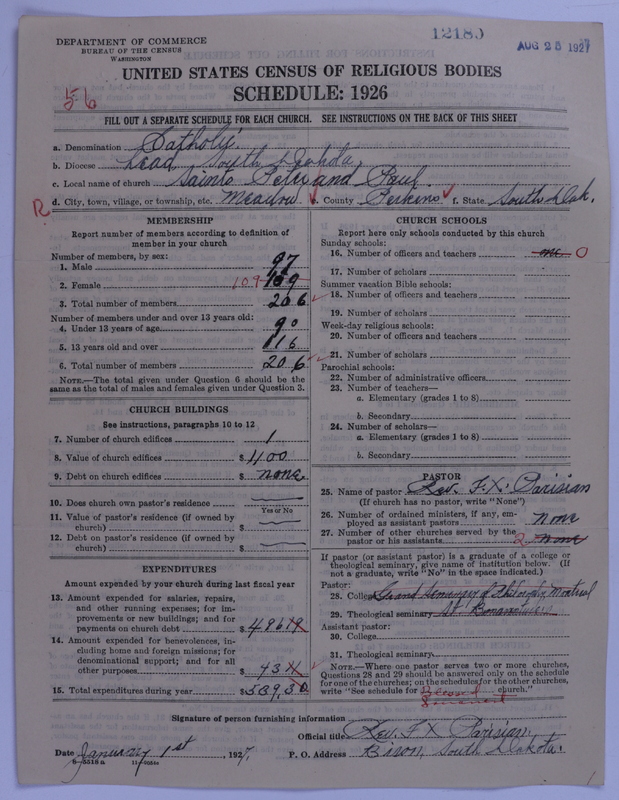 12180
AUG 25 1927
DEPARTMENT OF COMMERCE
BUREAU OF THE CENSUS
WASHINGTON
UNITED STATES CENSUS OF RELIGIOUS BODIES
SCHEDULE: 1926
56
FILL OUT A SEPARATE SCHEDULE FOR EACH CHURCH. SEE INSTRUCTIONS ON THE BACK OF THIS SHEET
a. Denomination Catholic
b. Diocese Lead, South Dakota
c. Local name of church Saints Peter and Paul.
R d. City, town, village, or township, etc. Meadow e. County Perkins f. State South Dak.
MEMBERSHIP
Report number of members according to definition of member in your church
Number of members, by sex:
1. Male 97
2. Female 109 109
3. Total number of members 206
Number of members under and over 13 years old:
4. Under 13 years of age 90
5. 13 years old and over 116
6. Total number of members 206
NOTE.—The total given under Question 6 should be the
same as the total of males and females given under Question 3.
CHURCH BUILDINGS
See instructions, paragraphs 10 to 12
7. Number of church edifices 1
8. Value of church edifices $
9. Debt on church edifices $ none
10. Does church own pastor's residence
Yes or No
11. Value of pastor's residence (if owned by
church) $
12. Debt on pastor's residence (if owned by
church) $
EXPENDITURES
Amount expended by your church during last fiscal year
13. Amount expended for salaries, repairs,
and other running expenses; for im-
provements or new buildings; and for
payments on church debt $
14. Amount expended for benevolences, in-
cluding home and foreign missions; for
denominational support; and for all
other purposes $
15. Total expenditures during year $
CHURCH SCHOOLS
Report here only schools conducted by this church
Sunday schools:
16. Number of officers and teachers one 0
17. Number of scholars
Summer vacation Bible schools:
18. Number of officers and teachers
19. Number of scholars
Week-day religious schools:
20. Number of officers and teachers
21. Number of scholars
Parochial schools:
22. Number of administrative officers
23. Number of teachers—
a. Elementary (grades 1 to 8)
b. Secondary
24. Number of scholars—
a. Elementary (grades 1 to 8)
b. Secondary
PASTOR
25. Name of pastor Rev. F. X. Parisian
(If church has no pastor, write "None")
26. Number of ordained ministers, if any, em-
ployed as assistant pastors none
27. Number of other churches served by the
pastor or his assistants 2 none
If pastor (or assistant pastor) is a graduate of a college or
theological seminary, give name of institution below. (If
not a graduate, write "No" in the space indicated.)
Pastor:
28. College Grand Seminary of Philosophy Montreal
29. Theological seminary St. Bonaventure
Assistant pastor:
30. College
31. Theological seminary
NOTE.—Where one pastor serves two or more churches,
Questions 28 and 29 should be answered only on the schedule
for one of the churches; on the schedules for the other churches,
write "See schedule for Blessed Sacrament church."
Signature of person furnishing information
Official title Rev. F. X. Parisian
Date January 1st, 1927. P. O. Address Bison, South Dakota.
8-5518 a